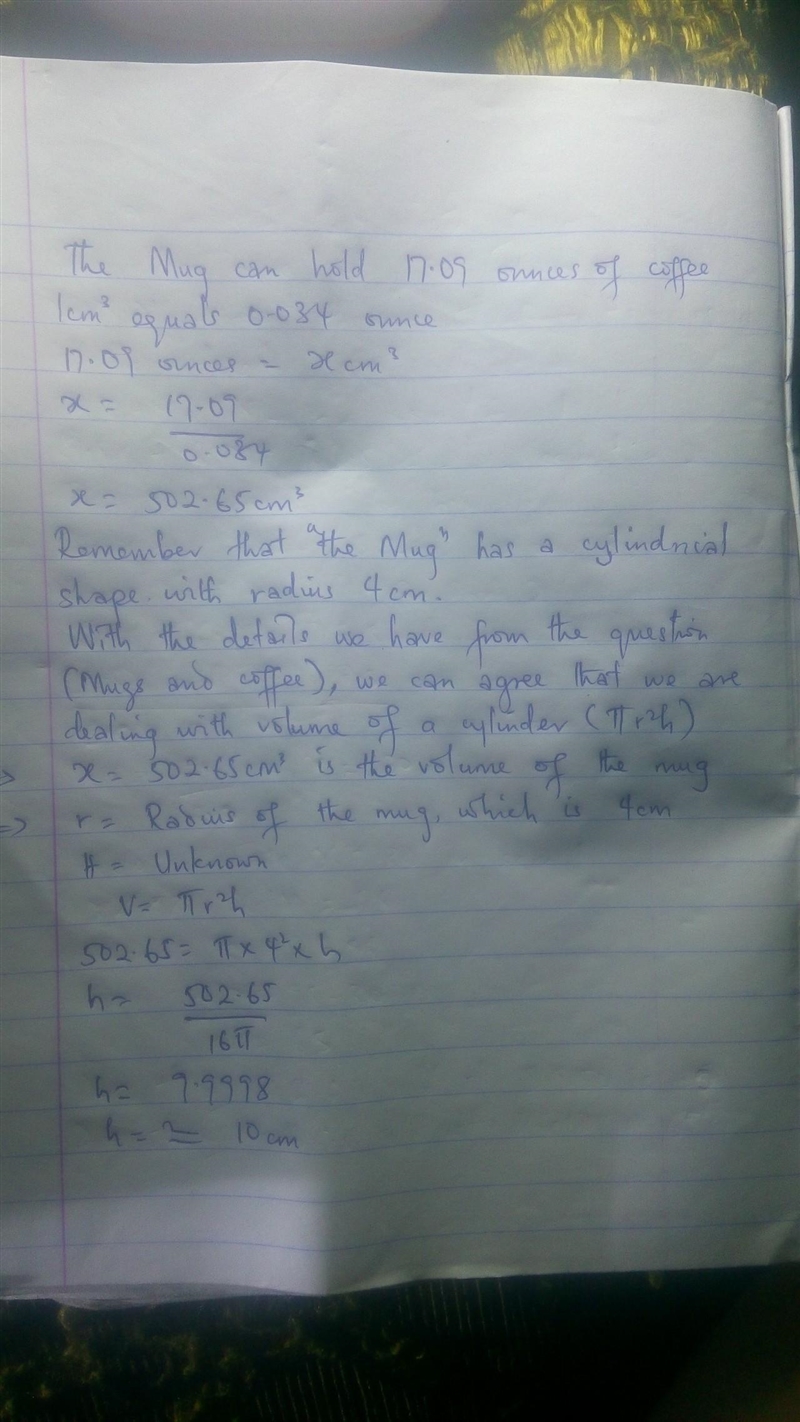 The Mug can hold 17.09 ounces of coffee
1cm³ equals 0.034 ounce
17.09 ounces = x cm³
x = 17.09
0.034
x = 502.65cm³
Remember that "the Mug" has a cylindrical
shape with radius 4cm.
With the details we have from the question
(Mugs and coffee), we can agree that we are
dealing with volume of a cylinder (πr²h)
=> x = 502.65cm³ is the volume of the mug
=> r = Radius of the mug, which is 4cm
H = Unknown
V = πr²h
502.65 = π × 4² × h
h = 502.65
16π
h = 9.9998
h = ≃ 10cm